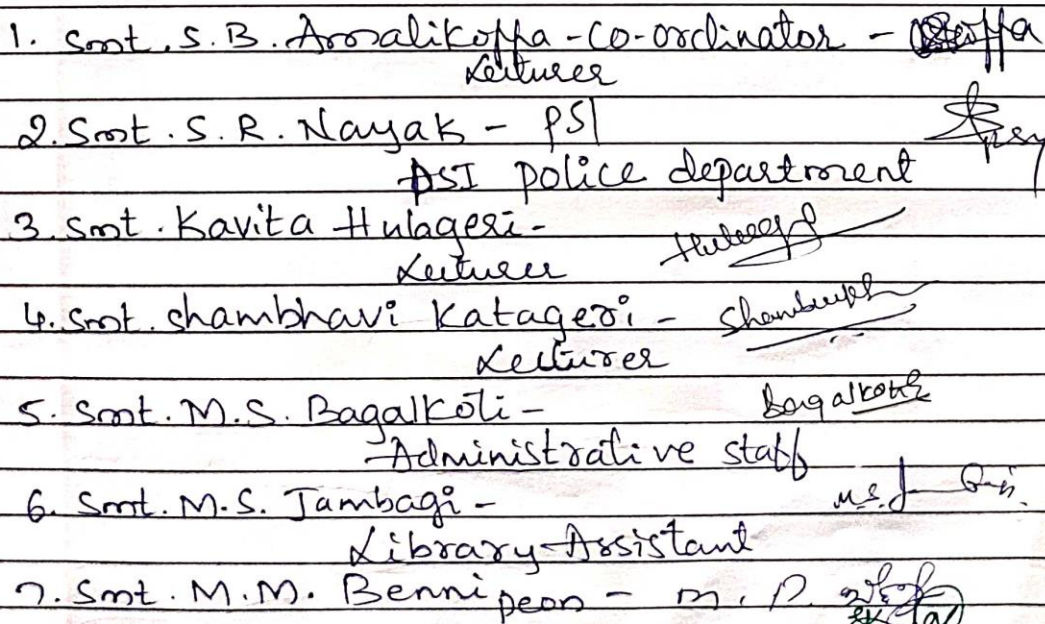 1. Smt. S. B. Arsalikoppa - Co-ordinator -
Lecturer
2. Smt. S. R. Nayak - PSI
ASI police department
3. Smt. Kavita Hulageri -
Lecturer
4. Smt. shambhavi Katageri -
Lecturer
5. Smt. M.S. Bagalkoti - Bagalkoti
Administrative staff
6. Smt. M.S. Jambagi -
Library Assistant
7. Smt. M.M. Benni peon -